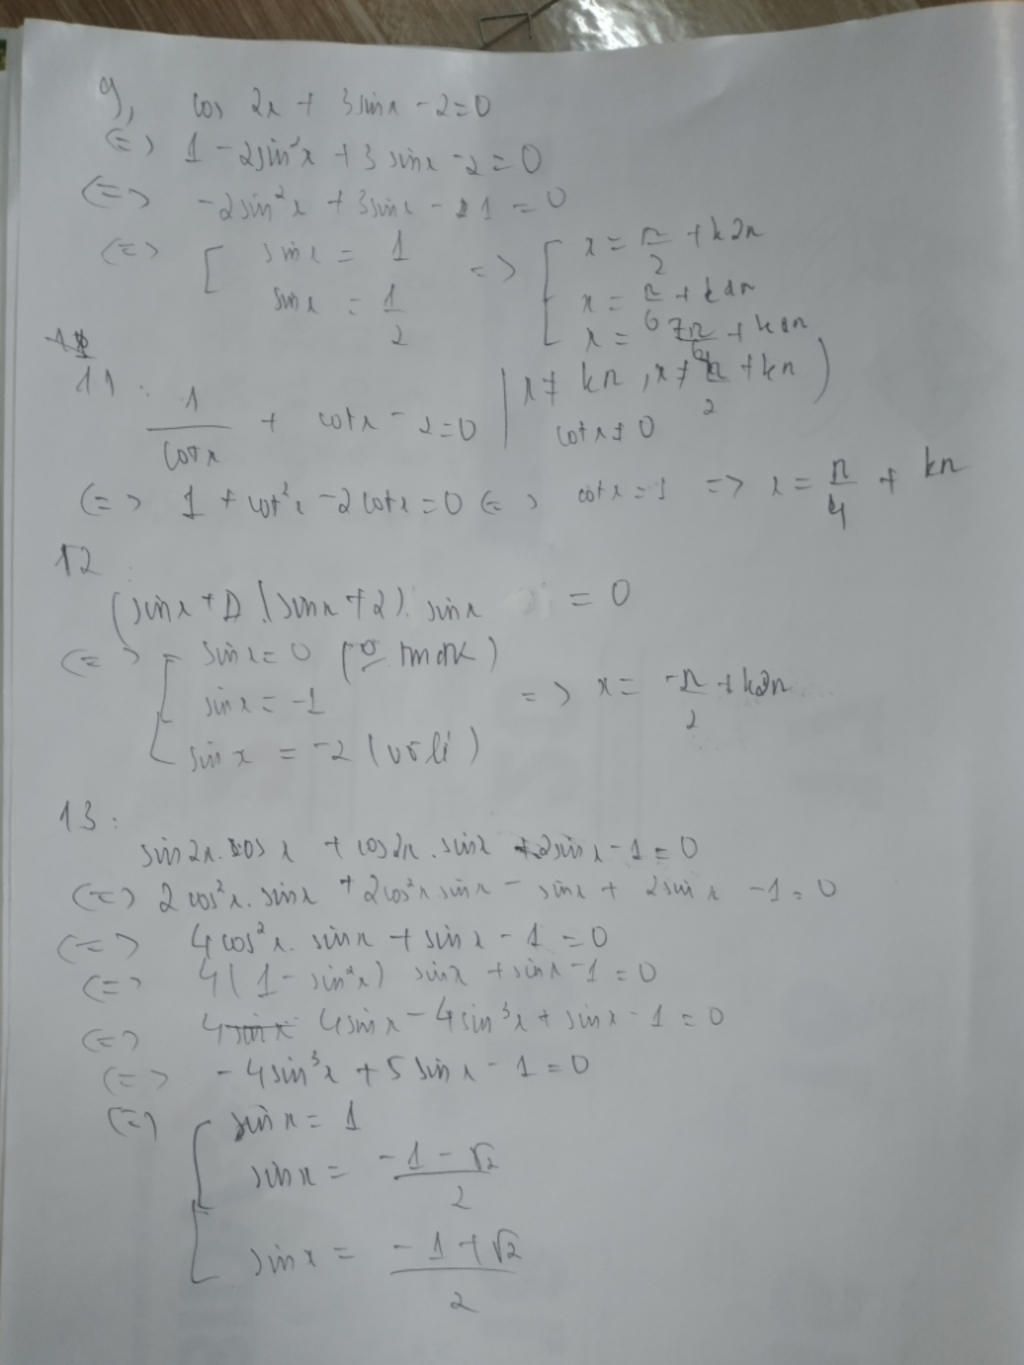 9, cos 2x + 3 sin x - 2 = 0
<=> 1 - 2sin²x + 3 sin x - 2 = 0
<=> -2sin²x + 3sin x - 1 = 0
<=> [ sin x = 1 => [ x = π/2 + k2π
sin x = 1/2 x = π/6 + k2π
x = 7π/6 + k2π
11: 1/cot x + cot x - 2 = 0 | x ≠ kπ, x ≠ π/2 + kπ )
cot x ≠ 0
<=> 1 + cot²x - 2cot x = 0 <=> cot x = 1 => x = π/4 + kπ
12:
(sin x + 1).(sin x + 2). sin x = 0
<=> [ sin x = 0 (o tmdk)
sin x = -1 => x = -π/2 + k2π
sin x = -2 (vô lí)
13:
sin 2x. cos x + cos 2x. sin x + 2 sin x - 1 = 0
<=> 2 cos²x. sin x + 2cos²x sin x - sin x + 2 sin x - 1 = 0
<=> 4cos²x. sin x + sin x - 1 = 0
<=> 4(1 - sin²x) sin x + sin x - 1 = 0
<=> 4sin x - 4sin³x + sin x - 1 = 0
<=> -4sin³x + 5 sin x - 1 = 0
<=> [ sin x = 1
sin x = (-1 - √2)/2
sin x = (-1 + √2)/2